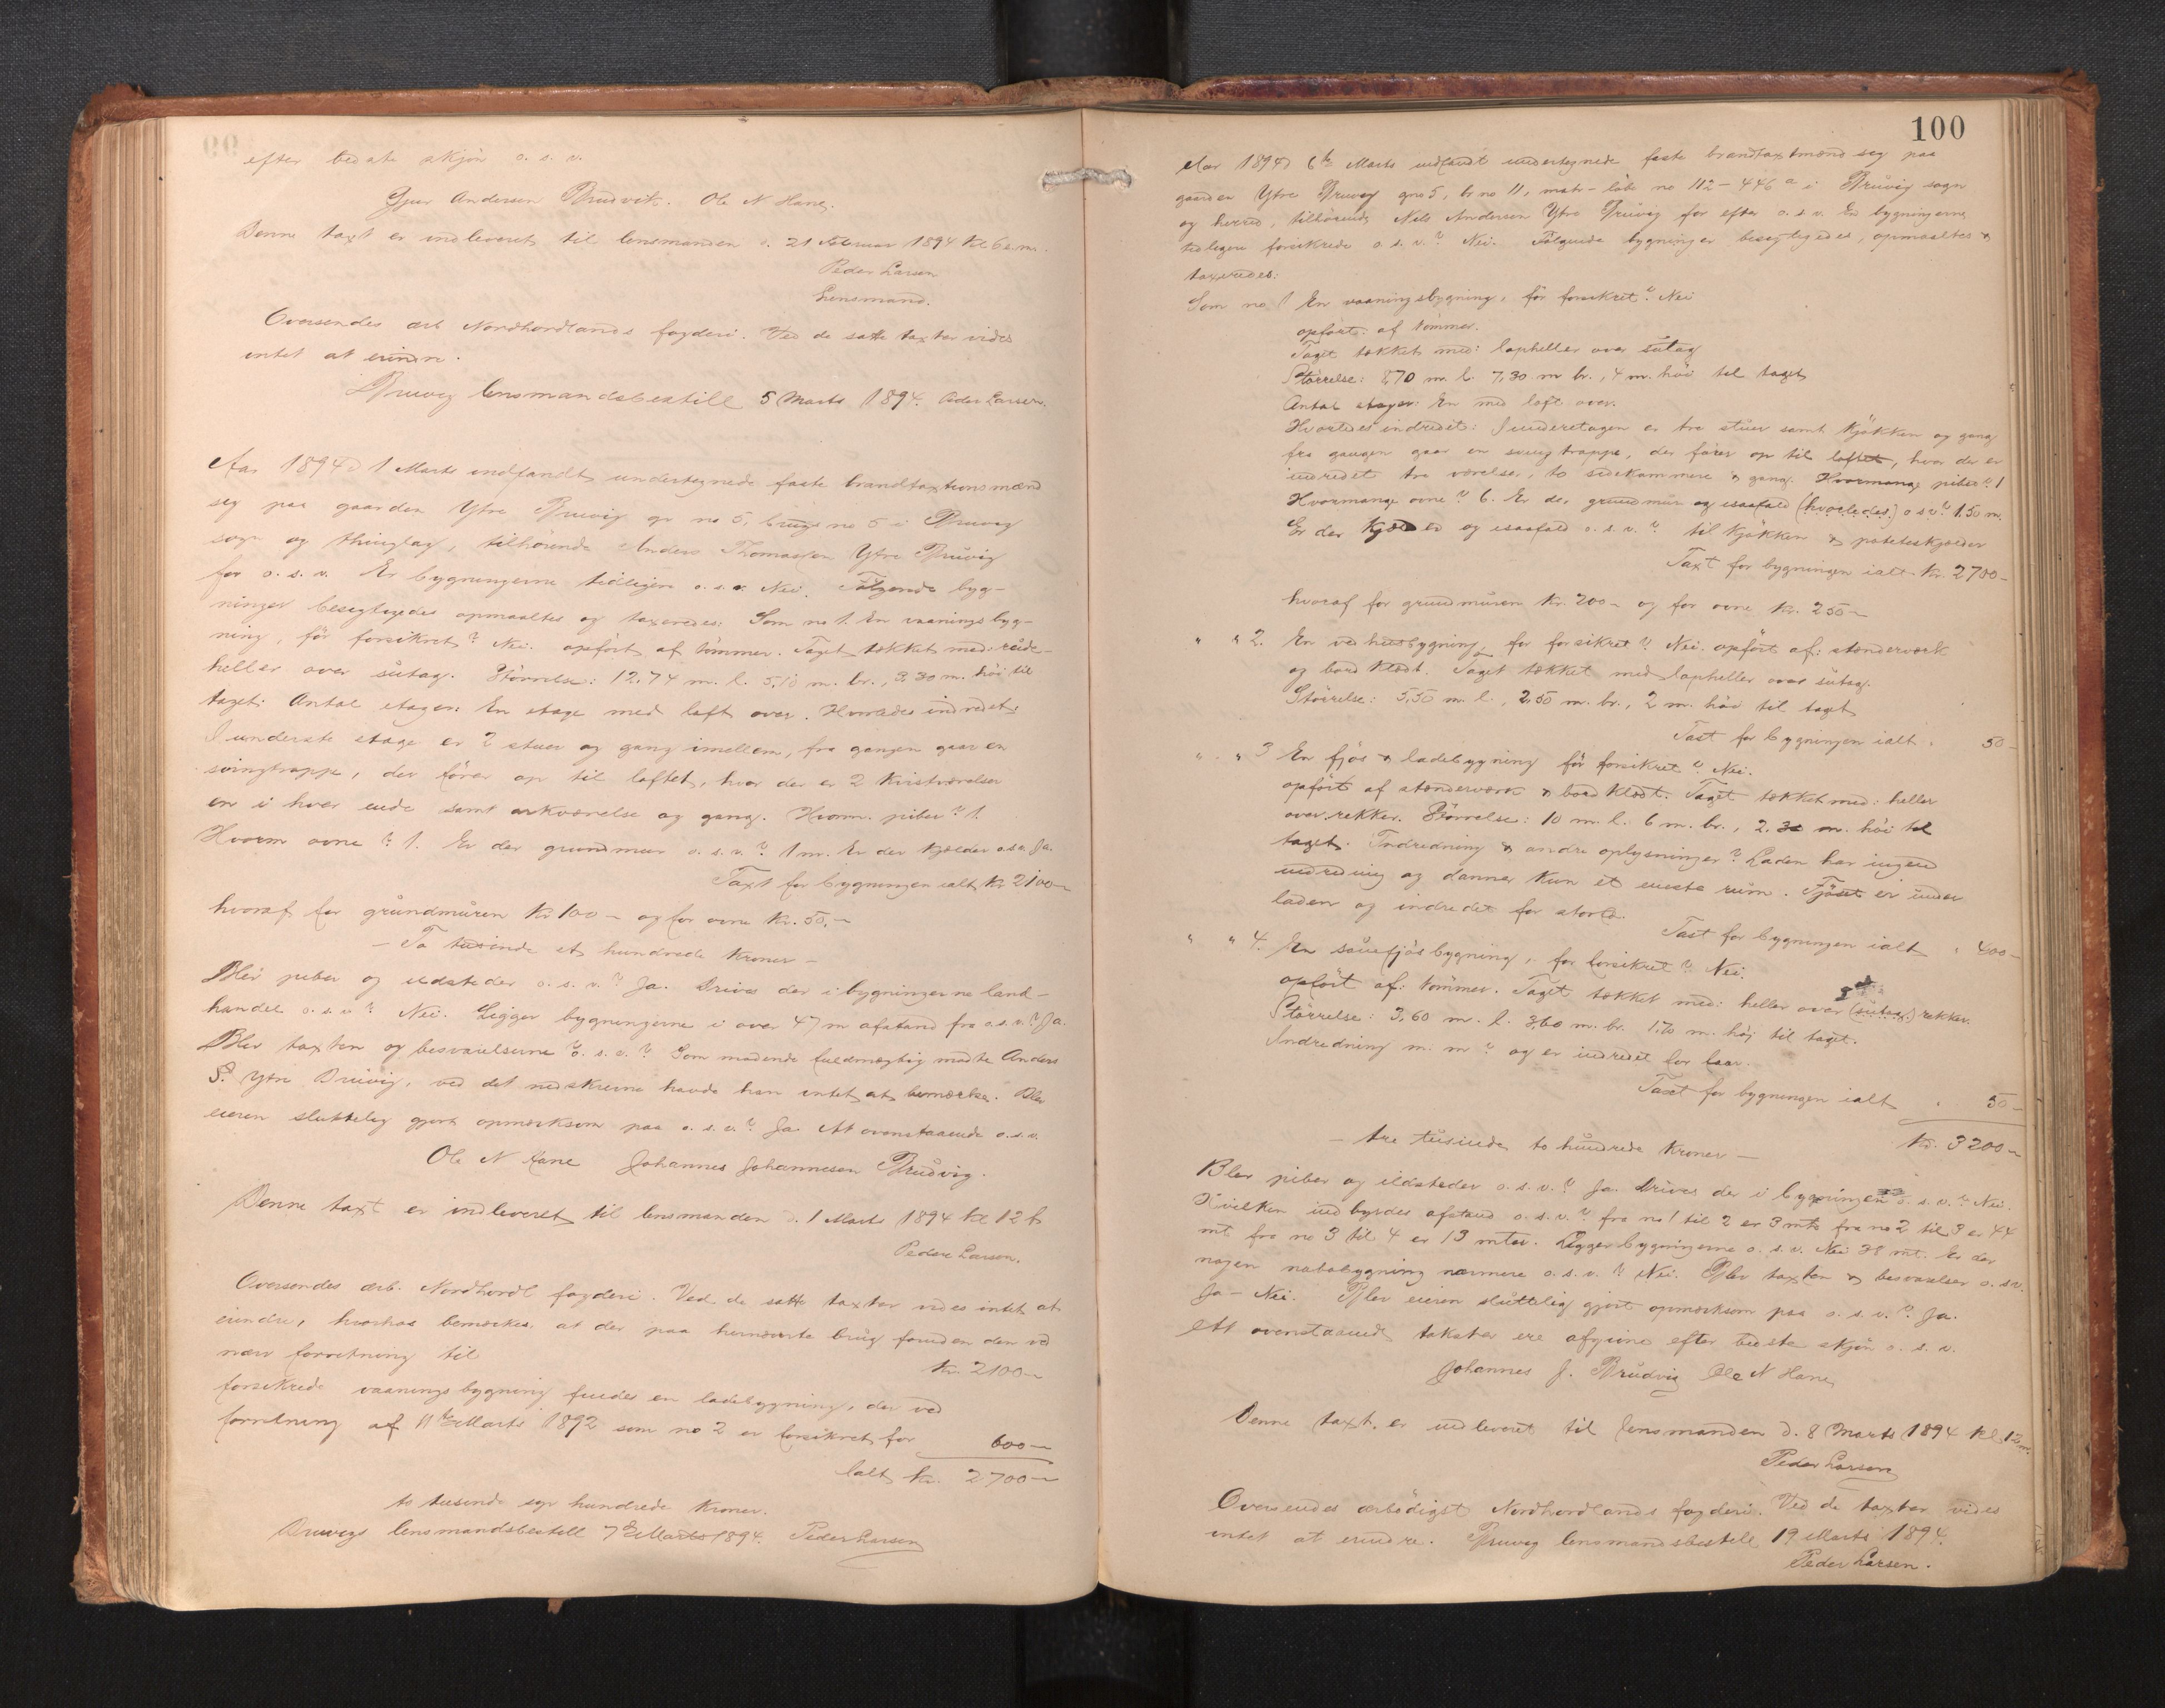 efter bedste skjön o. s. v.
Gjur Andersen Brudvik. Ole N Hane.
Denne taxt er indleveret til lensmanden d. 21 Februar 1894 kl 6 e.m.
Peder Larsen
Lensmand.
Oversendes ærb Nordhordlands fogderi. Ved de satte taxter vides
intet at erindre.
Bruvig lensmandsbestill 5 Marts 1894. Peder Larsen.
Aar 1894 d 1 Marts indfandt undertegnede faste brandtaxtionsmænd
seg paa gaarden Ytre Bruvig gr no 5, brugs no 5 i Bruvig
sogn og thinglag, tilhörende Anders Thomassen Ytre Bruvig
for o. s. v. Er bygningerne tidligere o. s. v. Nei. Fölgende byg-
ninger besigtigedes opmaaltes og taxeredes: Som no 1. En vaanings byg-
ning, för forsikret? Nei. opfört af tömmer. Taget tækket med: raade-
heller over sutag. Störrelse: 12.74 m. l. 5,10 m. br., 3,30 m. höi til
taget: Antal etager: En etage med loft over. Hvorledes indredet:
I underste etage er 2 stuer og gang imellem, fra gangen gaar en
svingtrappe, der förer op til loftet, hvor der er 2 kvistværelser
en i hver ende samt arkværelse og gang. Hvorm. piber? 1.
Hvorm ovne? 1. Er der grundmur o. s. v.? 1 m. Er der kjælder o.s.v. Ja.
Taxt for bygningen ialt kr 2100-
hvoraf for grundmuren kr 100- og for ovne kr. 50.-
- To tusinde et hundrede kroner -
Blev piber og ildsteder o. s. v.? Ja. Drives der i bygningerne land-
handel o. s. v? Nei. Ligger bygningerne i over 47 m afstand fra o.s.v.? Ja.
Blev taxten og besvarelserne o. s. v.? Som mödende fuldmægtig mödte Anders
S. Ytre Bruvig, ved det nedskrevne havde han intet at bemærke. Blev
eieren sluttelig gjort opmærksom paa o. s. v.? Ja. At ovenstaaende o.s.v.
Ole N Hane Johannes Johannesen Bruvig.
Denne taxt er indleveret til lensmanden d. 1 Marts 1894 kl 12 f.
Peder Larsen.
Oversendes ærb. Nordhordl fogderi. Ved de satte taxter vides intet at
erindre, hvorhos bemærkes at der paa hernævnte brug foruden den ved
nærv forretning til kr. 2100-
forsikrede vaaningsbygning findes en ladebygning, der ved
forretning af 11te Marts 1892 som no 2 er forsikret for 600-
Ialt kr. 2700-
to tusinde syv hundrede kroner.
Bruvigs lensmandsbestill 7de Marts 1894. Peder Larsen
100
Aar 1894 d 6te Marts indfandt undertegnede faste brandtaxtmænd seg paa
gaarden Ytre Bruvig gno 5, br no 11, matr-löbe no 112-446 a i Bruvig sogn
og herred, tilhörende Nels Andersen Ytre Bruvig for efter o. s. v. Er bygningerne
tidligere forsikrede o. s. v.? Nei. Fölgende bygninger besigtigedes, opmaaltes &
taxeredes:
Som no 1 En vaaningsbygning, för forsikret? Nei
opfört: af tömmer.
Taget tækket med: lapheller over sutag
Störrelse: 8,70 m. l. 7,30 m br., 4 m. höi til taget
Antal etager: En med loft over.
Hvorledes indredet: I underetagen er tre stuer samt kjökken og gang
fra gangen gaar en svingtrappe, der förer op til loftet, hvor der er
indredet tre værelser, to sidekammere & gang. Hvormange piber? 1
Hvormange ovne? 6. Er der grundmur og isaafald (hvorledes) o s v? 1.50 m.
Er der kjælder og isaafald o. s. v.? til kjökken & poteteskjælder
Taxt for bygningen ialt kr. 2700-
hvoraf for grundmuren kr. 200- og for ovne kr. 250-
" " 2. En vedhusbygning, for forsikret? Nei. opfört af: stænderværk
og bord klædt. Taget tækket med lapheller over sutag.
Störrelse: 5,50 m. l., 2,50 m. br., 2 m. höi til taget
Taxt for bygningen ialt " 50-
" " 3 En fjös & ladebygning för forsikret? Nei.
opfört af stænderværk & bord klædt. Taget tækket med: heller
over rekker. Störrelse: 10 m. l. 6 m. br., 2.30 m. höi til
taget. Indredning & andre oplysninger? Laden har ingen
indredning og danner kun et eneste rum. Fjöset er under
laden og indredet for storfæ.
Taxt for bygningen ialt " 400-
" " 4. En sauefjösbygning, for forsikret? Nei.
opfört af: tömmer. Taget tækket med: heller over (sutag) rekker.
Störrelse: 3,60 m. l. 3,60 m. br. 1,70 m. höj til taget.
Indredning m. m? og er indredet for faar.
Taxt for bygningen ialt " 50-
- tre tusinde to hundrede kroner - kr. 3200-
Blev piber og ildsteder o. s. v.? Ja. Drives der i bygningen o. s. v.? Nei.
Hvilken indbyrdes afstand o. s. v.? fra no 1 til 2 er 3 mtr fra no 2 til 3 er 44
mt fra no 3 til 4 er 13 mter. Ligger bygningerne o. s. v. Nei 38 mt. Er der
nogen nabobygning nærmere o. s. v.? Nei. Blev taxten & besvarelser o. s v.
Ja - Nei. Blev eieren sluttelig gjort opmærksom paa o. s. v.? Ja.
At ovenstaaende takster ere afgivne efter bedste skjön o. s. v.
Johannes J. Bruvig Ole N Hane
Denne taxt er indleveret til lensmanden d. 8 Marts 1894 kl 12 m.
Peder Larsen
Oversendes ærbödigst Nordhordlands fogderi. Ved de taxter vides
intet at erindre. Bruvig lensmandsbestill 19 Marts 1894.
Peder Larsen.